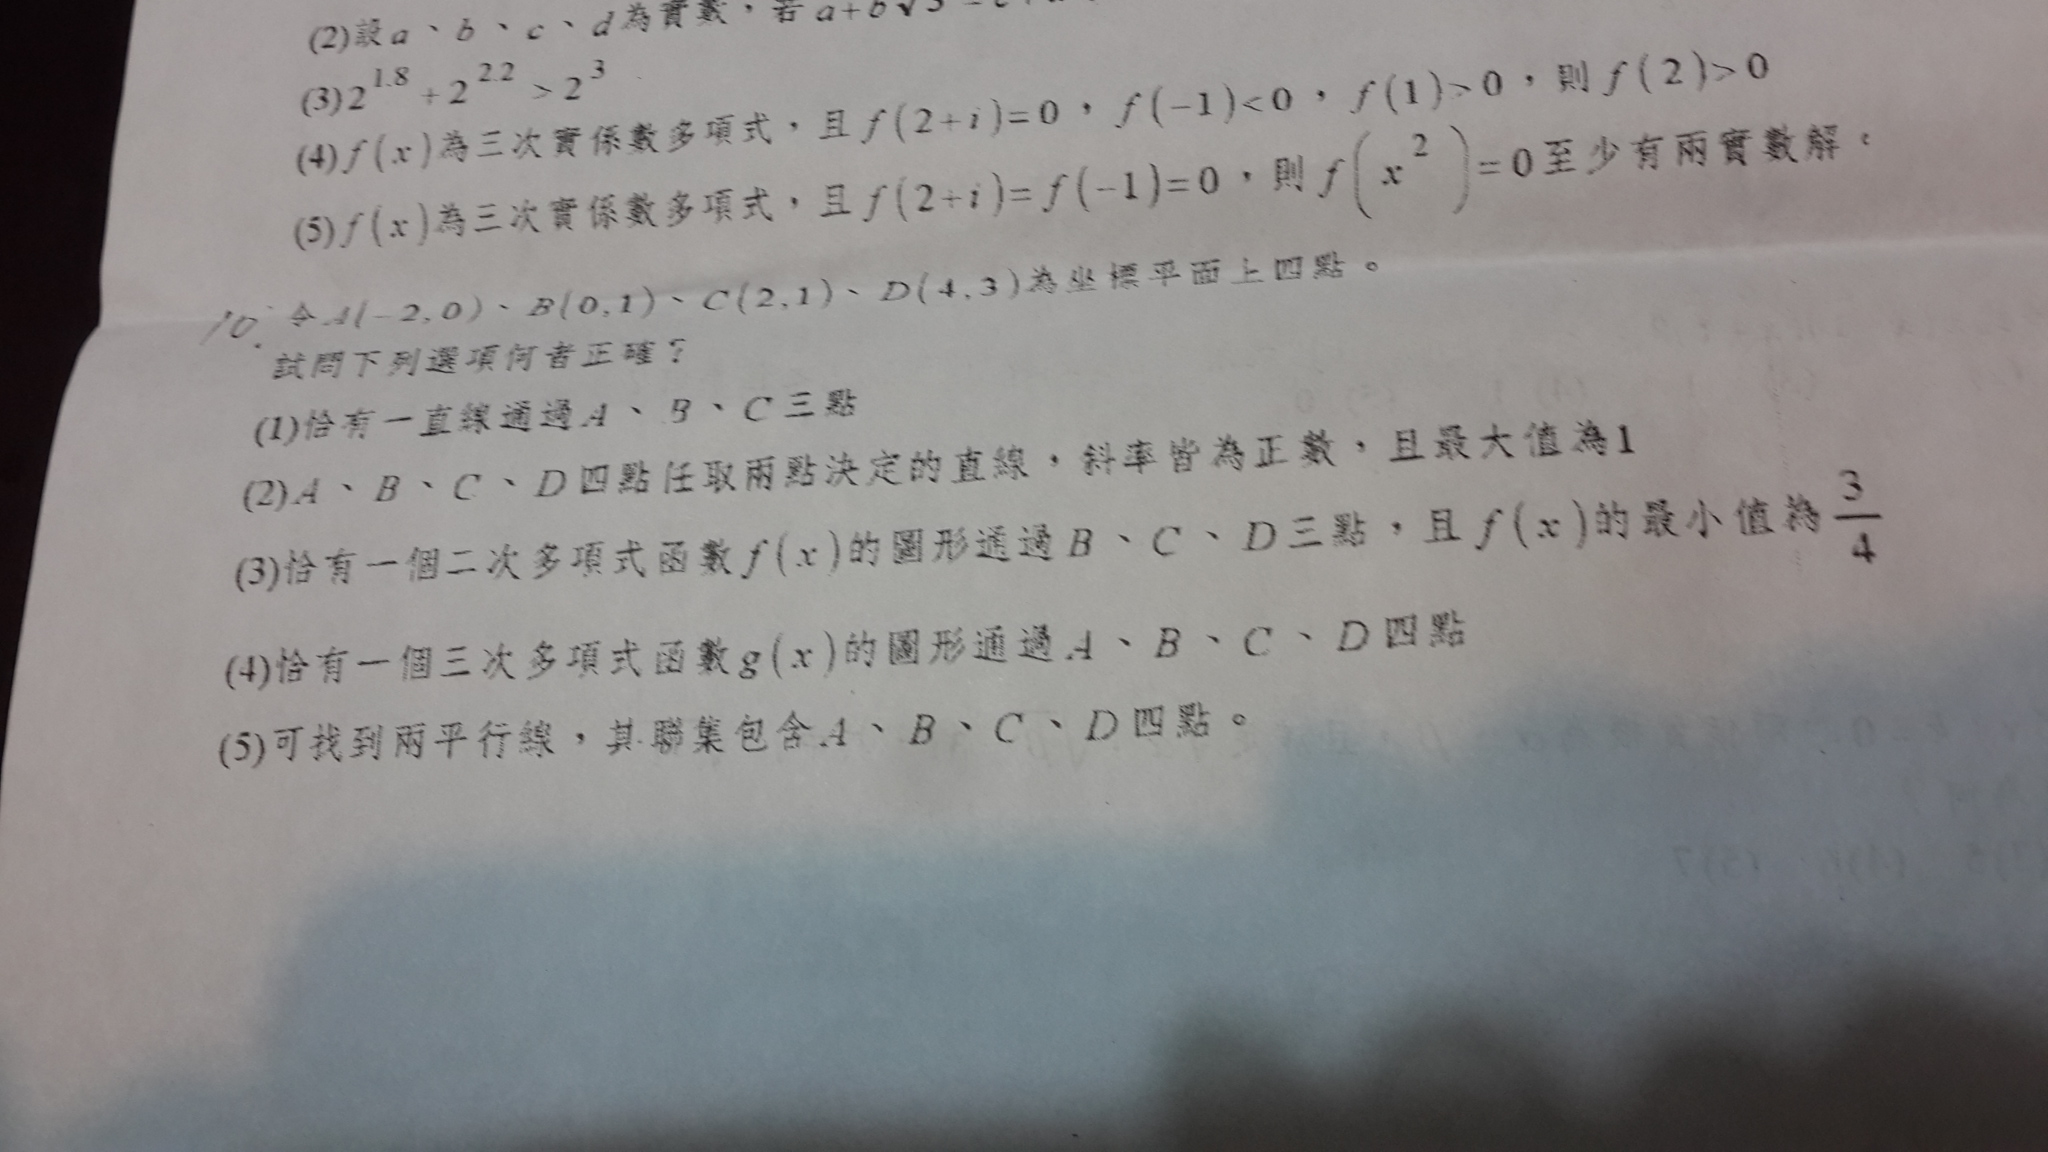 (2)設a、b、c、d為實數，若a+b√3=c+
(3)2^1.8+2^2.2>2^3
(4)f(x)為三次實係數多項式，且f(2+i)=0，f(-1)<0，f(1)>0，則f(2)>0
(5)f(x)為三次實係數多項式，且f(2+i)=f(-1)=0，則f(x^2)=0至少有兩實數解。
10. 令A(-2,0)、B(0,1)、C(2,1)、D(4,3)為坐標平面上四點。
試問下列選項何者正確？
(1)恰有一直線通過A、B、C三點
(2)A、B、C、D四點任取兩點決定的直線，斜率皆為正數，且最大值為1
(3)恰有一個二次多項式函數f(x)的圖形通過B、C、D三點，且f(x)的最小值為3/4
(4)恰有一個三次多項式函數g(x)的圖形通過A、B、C、D四點
(5)可找到兩平行線，其聯集包含A、B、C、D四點。